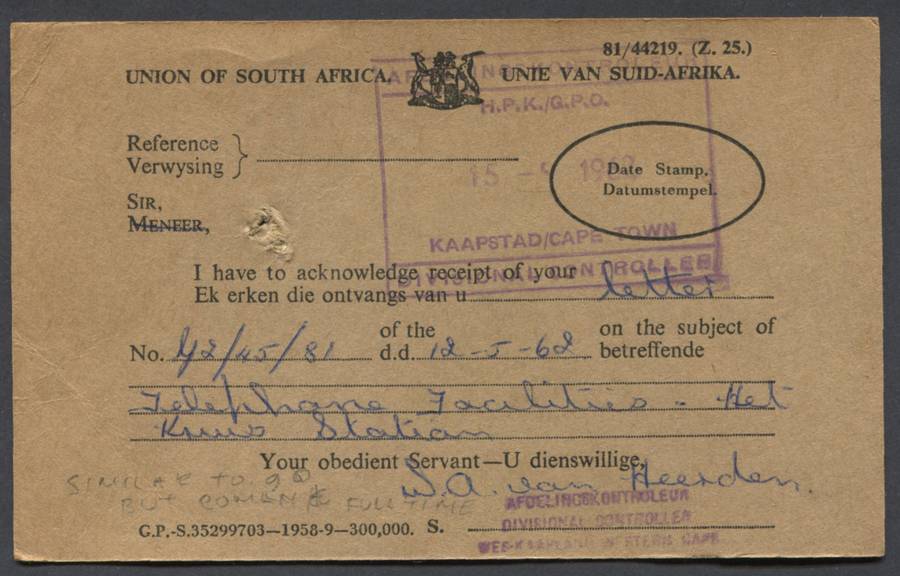 81/44219. (Z. 25.)
UNION OF SOUTH AFRICA, UNIE VAN SUID-AFRIKA.
H.P.K./G.P.O.
Reference
Verwysing
15 - 1962
Date Stamp.
Datumstempel.
SIR,
MENEER,
KAAPSTAD/CAPE TOWN
DIVISIONAL CONTROLLER
I have to acknowledge receipt of your
Ek erken die ontvangs van u letter
No. Y2/45/81 of the d.d. 12-5-62 on the subject of betreffende
Telephone Facilities - Het
Kruis Station
Your obedient Servant—U dienswillige,
W.A. van Heerden.
SIMILAR TO
BUT FULL TIME
AFDELINGSKONTROLEUR
DIVISIONAL CONTROLLER
WES-KAAPLAND WESTERN CAPE
G.P.-S.35299703—1958-9—300,000. S.